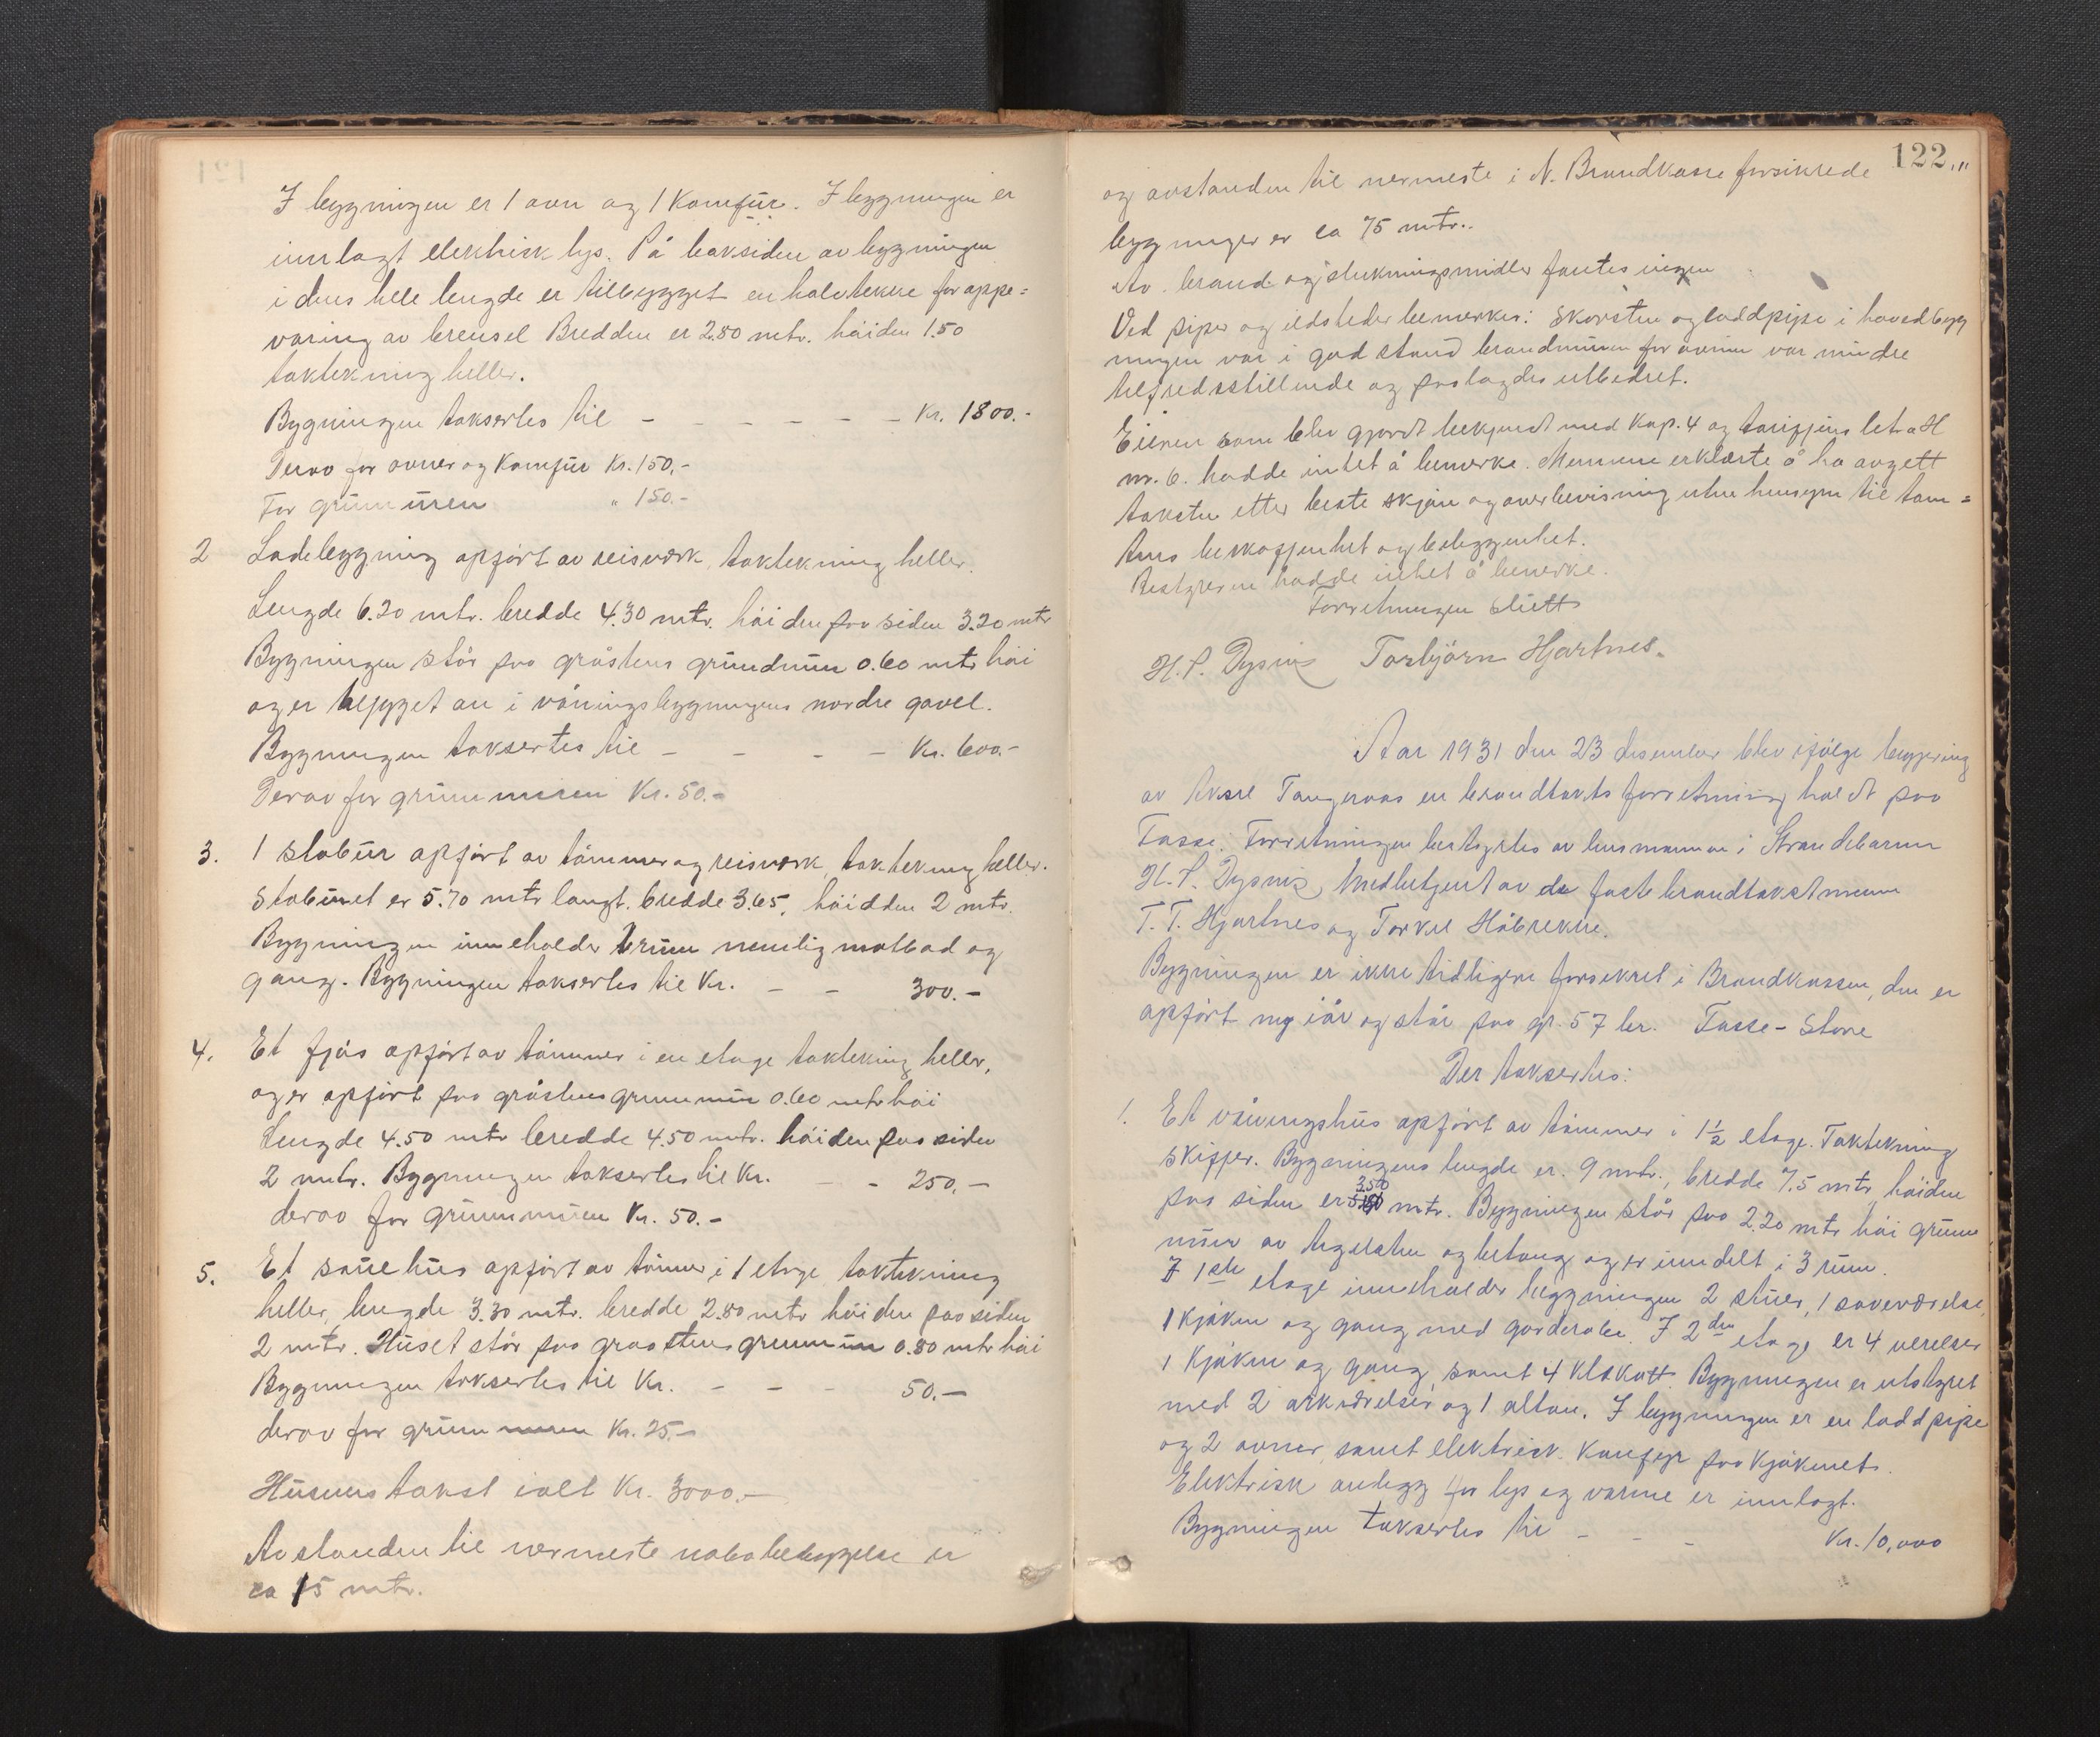 I bygningen er 1 ovn og 1 Komfür. I bygningen er
innlagt elektrisk lys. På baksiden av bygningen
i dens hele lengde er tilbygget en halvtekke for oppe=
varing av brensel Bredden er 2.80 mtr. høiden 1.50
taktekning heller.
Bygningen taksertes til - - - - - - Kr. 1800.-
Derav for ovner og Komfür Kr. 150.-
For grünmüren " 150.-
2 Ladebygning opført av reisverk, taktekning heller.
Lengde 6.20 mtr. bredde 4.30 mtr. høiden paa siden 3.20 mtr
Bygningen står paa gråstens gründmür 0.60 mtr høi
og er bygget an i våningsbygningens nordre gavel.
Bygningen taksertes til - - - - Kr. 600.-
Derav for grünmüren Kr. 50.-
3. 1 stabür opført av tømmer og reisverk, taktekning heller.
Stabüret er 5.70 mtr langt. bredde 3.65, høidden 2 mtr.
Bygningen inneholder 2 rüm nemlig matbod og
gang. Bygningen taksertes til Kr. - - 300.-
4. Et fjøs opført av tømmer i en etage taktekning heller,
og er opført paa gråstens grunnmür 0.60 mtr høi
Lengde 4.50 mtr bredde 4.50 mtr. høiden paa siden
2 mtr. Bygningen taksertes til Kr. - - 250.-
derav for grünnmüren Kr. 50.-
5. Et sauehüs opført av tømmer i 1 etage taktekning
heller, lengde 3.30 mtr. bredde 2.80 mtr høiden paa siden
2 mtr. Hüset står paa graastens grunnmür 0.80 mtr høi
Bygningen taksertes til Kr. - - - 50.-
derav for grünnmuren Kr. 25.-
Hüsenes takst ialt Kr. 3000.-
Avstanden til nermeste nabobebyggelse er
ca 15 mtr.
122.
og avstanden til nermeste i N. Brandkasse forsikrede
bygninger er ca 75 mtr..
Av brand og slukningsmidler fantes ingen
Ved piper og ildsteder bemerkes: Skorsten og loddpipe i hovedbyg
ningen var i god stand brandmüren for ovnen var mindre
tilfredsstillende og paalagdes utbedret.
Eieren som blev gjordt bekjendt med Kap. 4 og tariffens litra H
nr. 6. hadde intet å bemerke. Mennene erklærte å ha avgett
taksten etter beste skjøn og overbevisning uten hensyn til tom=
tens beskaffenhet og beliggenhet.
Bestyreren hadde intet å bemerke.
Forretningen slutt
H. P. Dysvik Torbjörn Hjartnes.
Aar 1931 den 23 desember blev ifølge begjæring
av Aksel Tangeraas en brandtakts forretning holdt paa
Tasse. Forretningen bestyrtes av lensmannen i Strandebarm
H. P. Dysvik, medbetjent av de faste brandtakstmenn
T. T. Hjartnes og Torkel Håbrekke.
Bygningen er ikke tidligere forsekret i Brandkassen, den er
opført ny iår og står paa gr. 57 br. Tasse - Store
Der taksertes:
1. Et våningshüs opført av tømmer i 1½ etage. Taktekning
skiffer. Bygningens lengde er. 9 mtr., bredde 7.5 mtr, høiden
paa siden er 3.50 mtr. Bygningen står paa 2.20 mtr høi grünn
müer av tegelsten og betong og er inndelt i 3 rüm.
I 1ste etage inneholder bygningen 2 stüer, 1 soveværelse,
1 kjøken og gang med garderobe. I 2den etage er 4 verelser
1 Kjøken og gang, samt 4 klskott. Bygningen er utstyret
med 2 arkverelser og 1 altan. I bygningen er en loddpipe
og 2 ovner, samt elektrisk Komfyr paa Kjøkenet.
Elektrisk anlegg for lys og varme er innlagt.
Bygningen taksertes til - - - Kr. 10,000